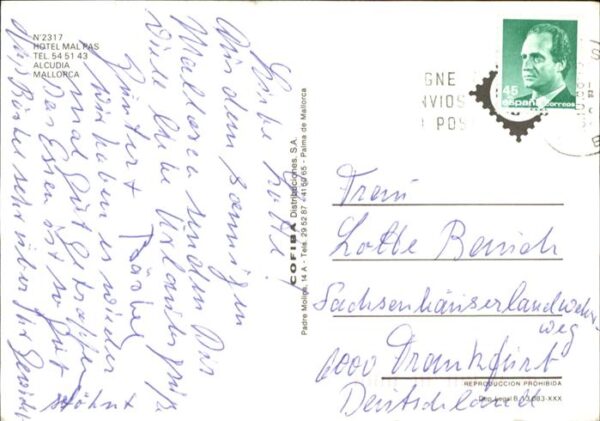 N°2317
HOTEL MAL PAS
TEL. 54 51 43
ALCUDIA
MALLORCA
Liebe Lotte!
Aus dem sonnigen
Mallorca senden Dir
viele liebe Urlaubsgrüße
Günter + Bärbel
Wir haben es wieder
mal gut getroffen
Das Essen ist so gut
daß Bärbel sehr über Ihr Gewicht
stöhnt
COFIBA Distribuciones, S.A.
Padre Molina, 14 A - Tels. 29 52 87 - 41 60 65 - Palma de Mallorca
GNE
NVIOS
POS
45
españa correos
Frau
Lotte
Sachsenhäuserlandwehr-
weg
6000 Frankfurt
Deutschland
REPRODUCCION PROHIBIDA
Dep. Legal B. 13.083-XXX